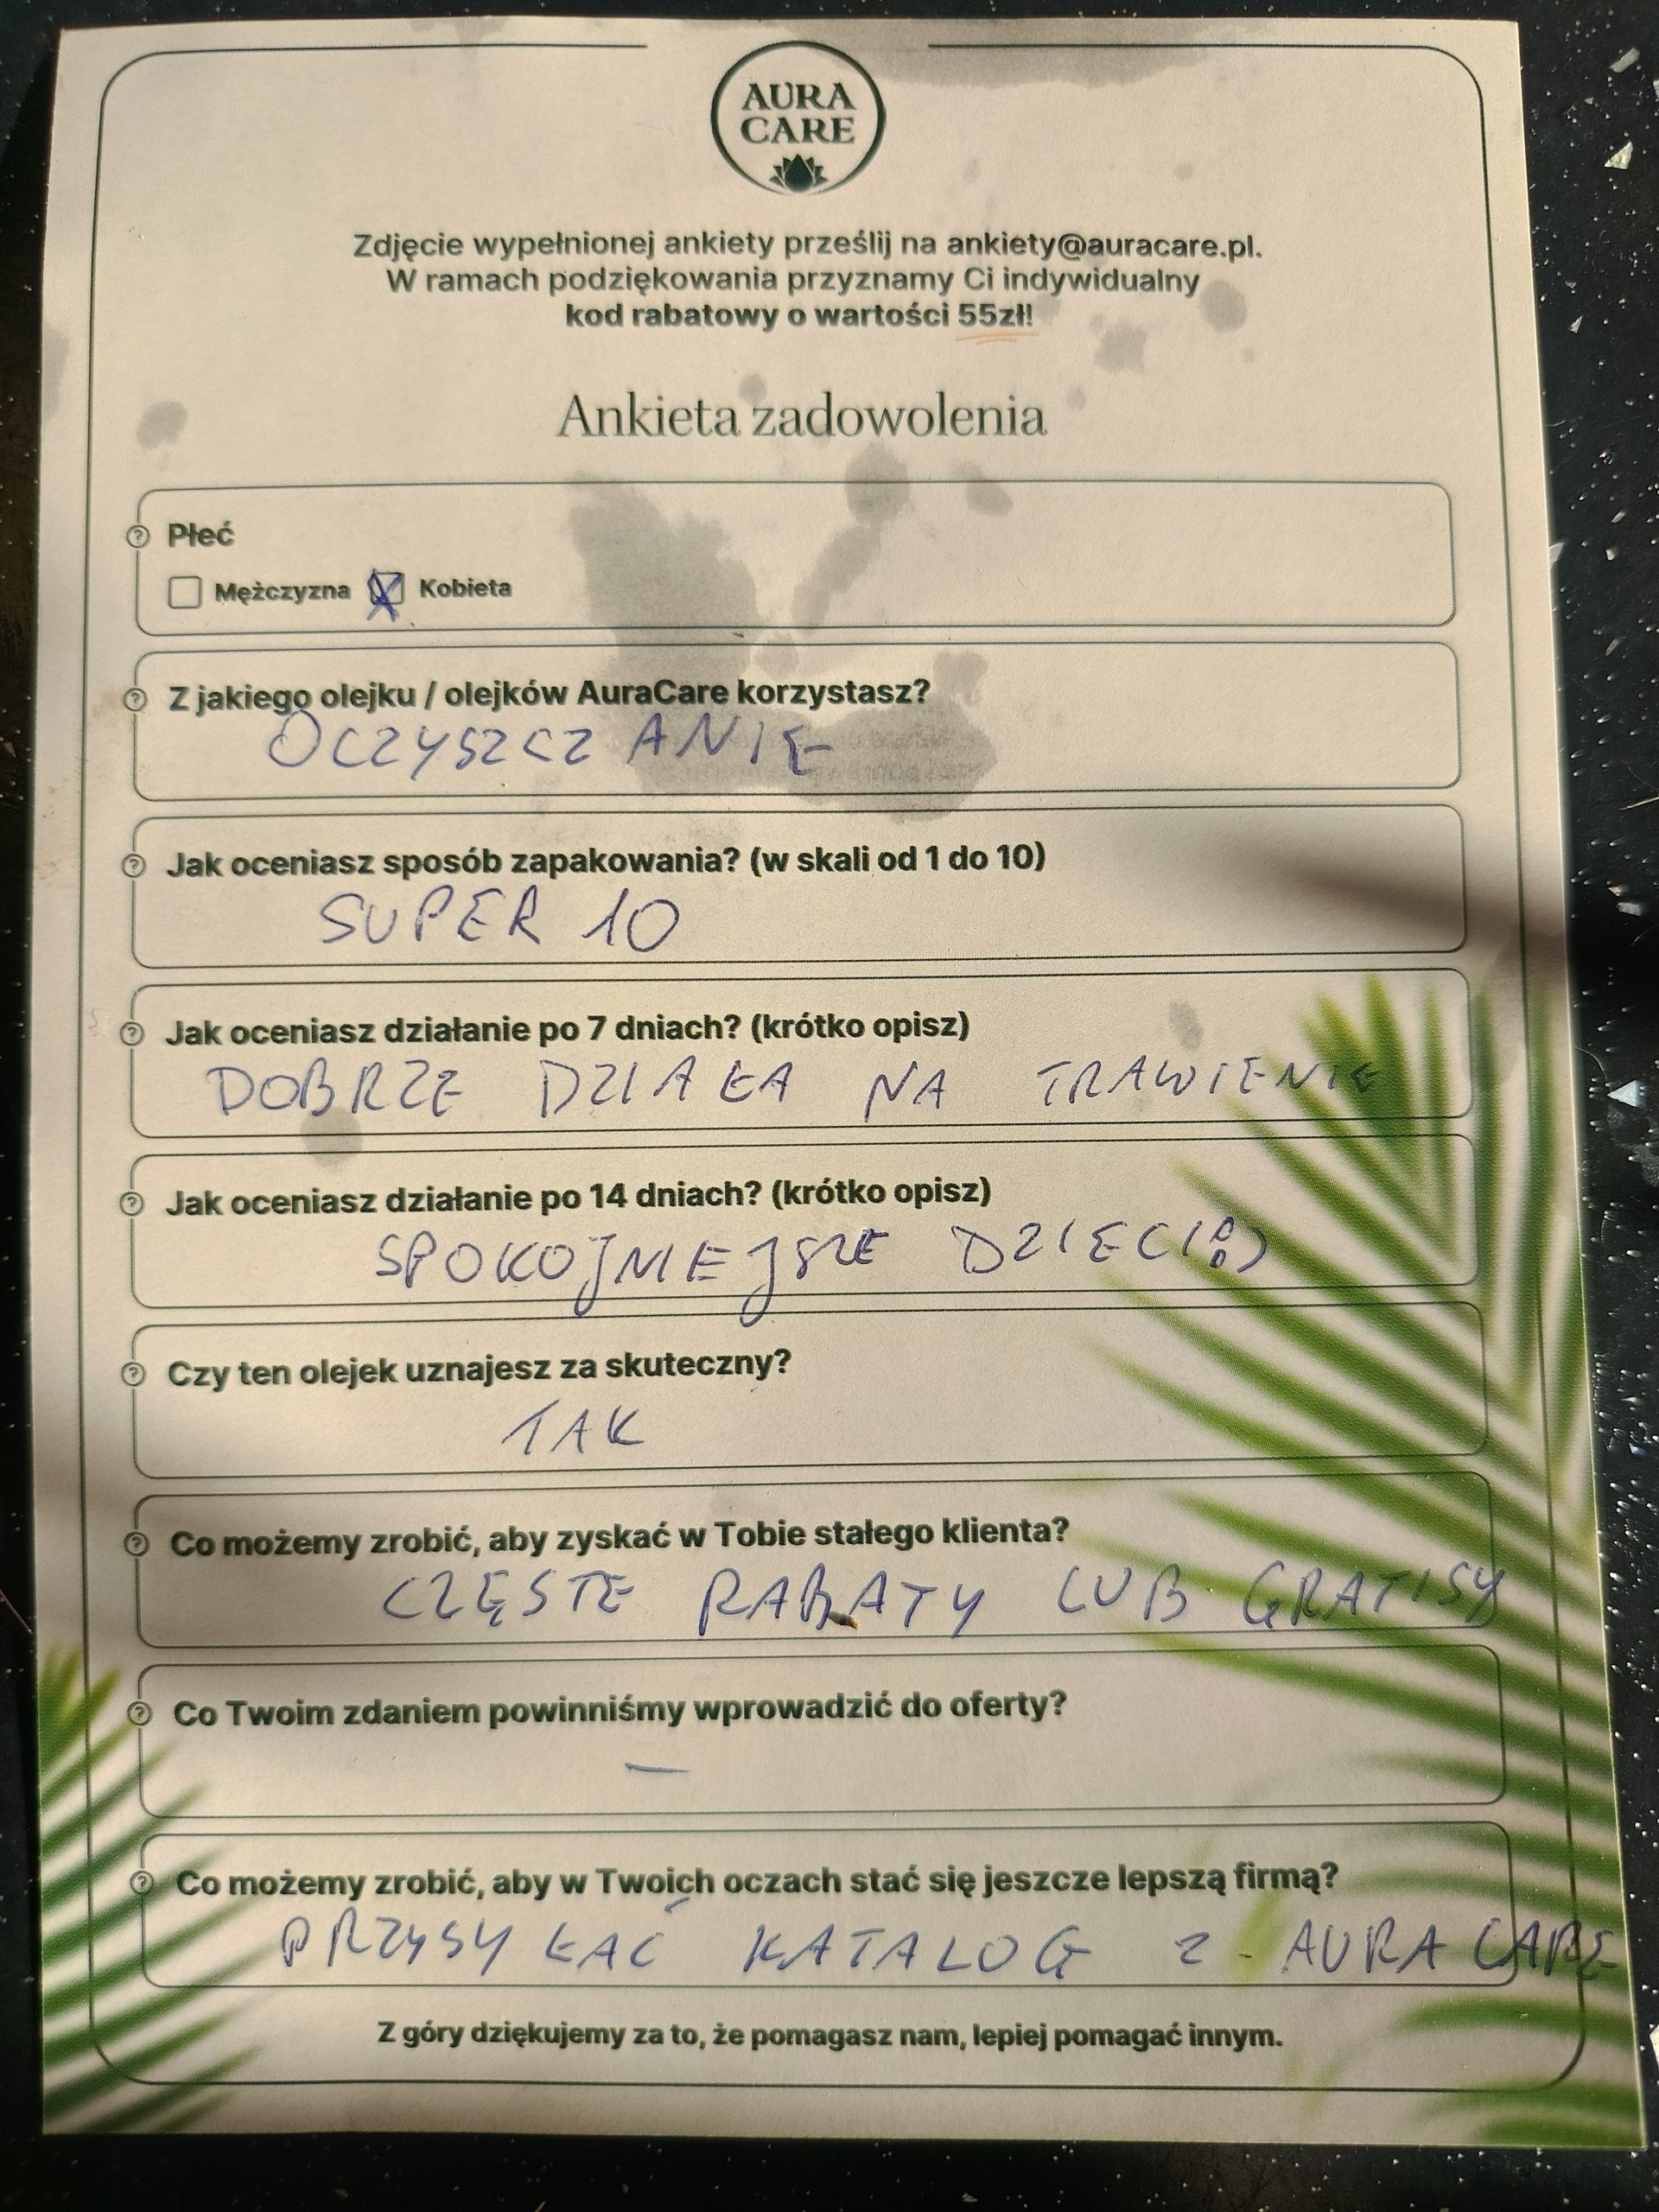 AURA
CARE
Zdjęcie wypełnionej ankiety prześlij na ankiety@auracare.pl.
W ramach podziękowania przyznamy Ci indywidualny
kod rabatowy o wartości 55zł!
Ankieta zadowolenia
Płeć
Mężczyzna Kobieta
Z jakiego olejku / olejków AuraCare korzystasz?
OCZYSZCZANIE
Jak oceniasz sposób zapakowania? (w skali od 1 do 10)
SUPER 10
Jak oceniasz działanie po 7 dniach? (krótko opisz)
DOBRZE DZIAŁA NA TRAWIENIE
Jak oceniasz działanie po 14 dniach? (krótko opisz)
SPOKOJNIEJSZE DZIECI :)
Czy ten olejek uznajesz za skuteczny?
TAK
Co możemy zrobić, aby zyskać w Tobie stałego klienta?
CZĘSTE RABATY LUB GRATISY
Co Twoim zdaniem powinniśmy wprowadzić do oferty?
—
Co możemy zrobić, aby w Twoich oczach stać się jeszcze lepszą firmą?
PRZYSYŁAĆ KATALOG Z AURA CARE
Z góry dziękujemy za to, że pomagasz nam, lepiej pomagać innym.